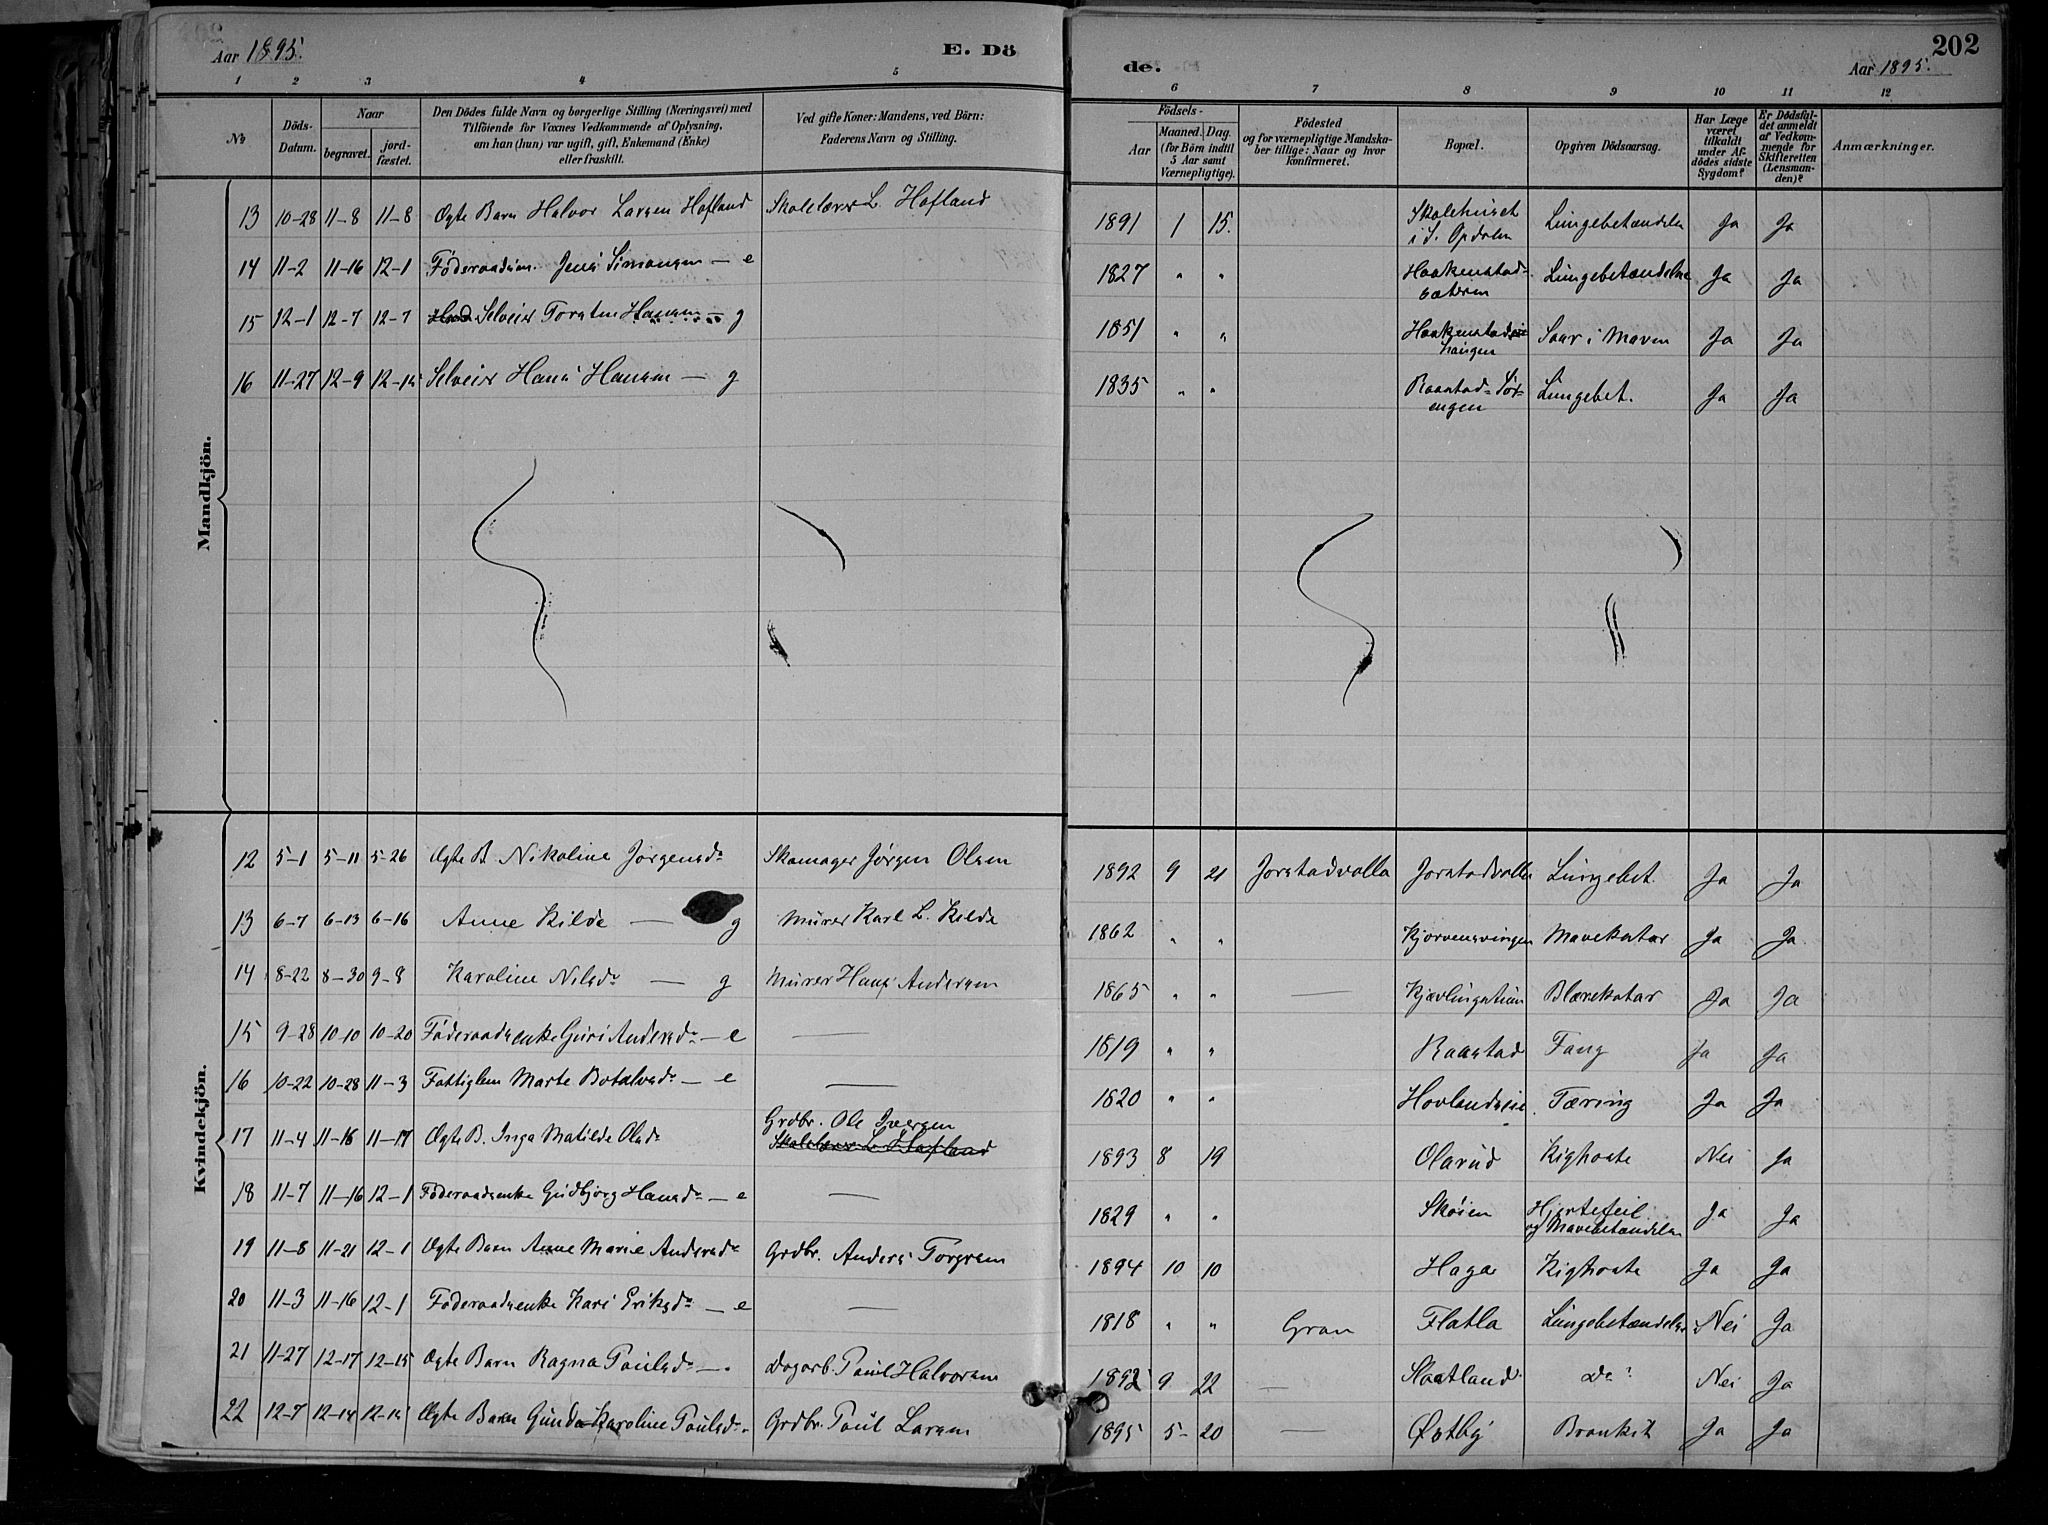 Aar 1895.
E. Dö
de.
202
Aar 1895.
1 2 3 4 5 6 7 8 9 10 11 12
No
Döds-Datum.
Naar
begravet.
jord-fæstet.
Den Dödes fulde Navn og borgerlige Stilling (Næringsvei) med
Tilföiende for Voxnes Vedkommende af Oplysning,
om han (hun) var ugift, gift, Enkemand (Enke)
eller fraskilt.
Ved gifte Koner: Mandens, ved Börn:
Faderens Navn og Stilling.
Födsels-
Aar
Maaned. Dag.
(for Börn indtil
5 Aar samt
Værnepligtige).
Födested
og for værnepligtige Mandska-
ber tillige: Naar og hvor
konfirmeret.
Bopæl.
Opgiven Dödsaarsag.
Har Læge
været
tilkaldt
under Af-
dödes sidste
Sygdom?
Er Dödsfal-
det anmeldt
af Vedkom-
mende for
Skifteretten
(Lensman-
den)?
Anmærkninger.
Mandkjön.
13 10-28 11-8 11-8 Ægte Barn Halvor Larsen Hofland Skolelærer L. Hofland 1891 1 15. Skolehuset i S. Opdalen Lungebetændelse Ja Ja
14 11-2 11-16 12-1 Føderaadsm. Jens Simonsen — e 1827 " " Haakenstad-sæteren Lungebetændelse Ja Ja
15 12-1 12-7 12-7 Selveier Torsten Hansen — g 1851 " " Haakenstad haugen Saar i Maven Ja Ja
16 11-27 12-9 12-15 Selveier Hans Hansen — g 1835 " " Raastad-Sør-engen Lungebet. Ja Ja
Kvindekjön.
12 5-1 5-11 5-26 Ægte B. Nikoline Jørgensdr Skomager Jørgen Olsen 1892 9 21 Jorstadvolla Jorstadvolla Lungebet. Ja Ja
13 6-7 6-13 6-16 Anne Kilde — g Murer Karl L. Kilde 1862 " " Kjorvensvingen Mavekatar Ja Ja
14 8-22 8-30 9-8 Karoline Nilsdr — g Murer Hans Andersen 1865 " " — Kjævlingstuen Blærekatar Ja Ja
15 9-28 10-10 10-20 Føderaadsenke Guri Andersdr — e — 1819 " " Raastad Tang Ja Ja
16 10-22 10-28 11-3 Fattiglem Marte Botolvsdr — e — 1820 " " Hovlandseie Tæring Ja Ja
17 11-4 11-16 11-17 Ægte B. Inga Matilde Olsdr Grdbr. Ole Iversen Skolelærer L. Hofland 1893 8 19 Olarud Kighoste Nei Ja
18 11-7 11-16 12-1 Føderaadsenke Gudbjørg Hansdr — e — 1829 " " Skøien Hjertefeil og Mavebetændelse Ja Ja
19 11-8 11-21 12-1 Ægte Barn Anne Marie Andersdr Grdbr. Anders Torgersen 1894 10 10 Haga Kighoste Ja Ja
20 11-3 11-16 12-1 Føderaadsenke Kari Eriksdr — e — 1818 " " Gran Flatla Lungebetændelse Nei Ja
21 11-27 12-17 12-15 Ægte Barn Ragna Poulsdr — Dagarb. Poul Halvorsen 1892 9 22 — Slaatland Do Nei Ja
22 12-7 12-14 12-15 Ægte Barn Gunda Karoline Poulsdr Grdbr. Poul Larsen 1895 5- 20 — Østby Bronkit Ja Ja